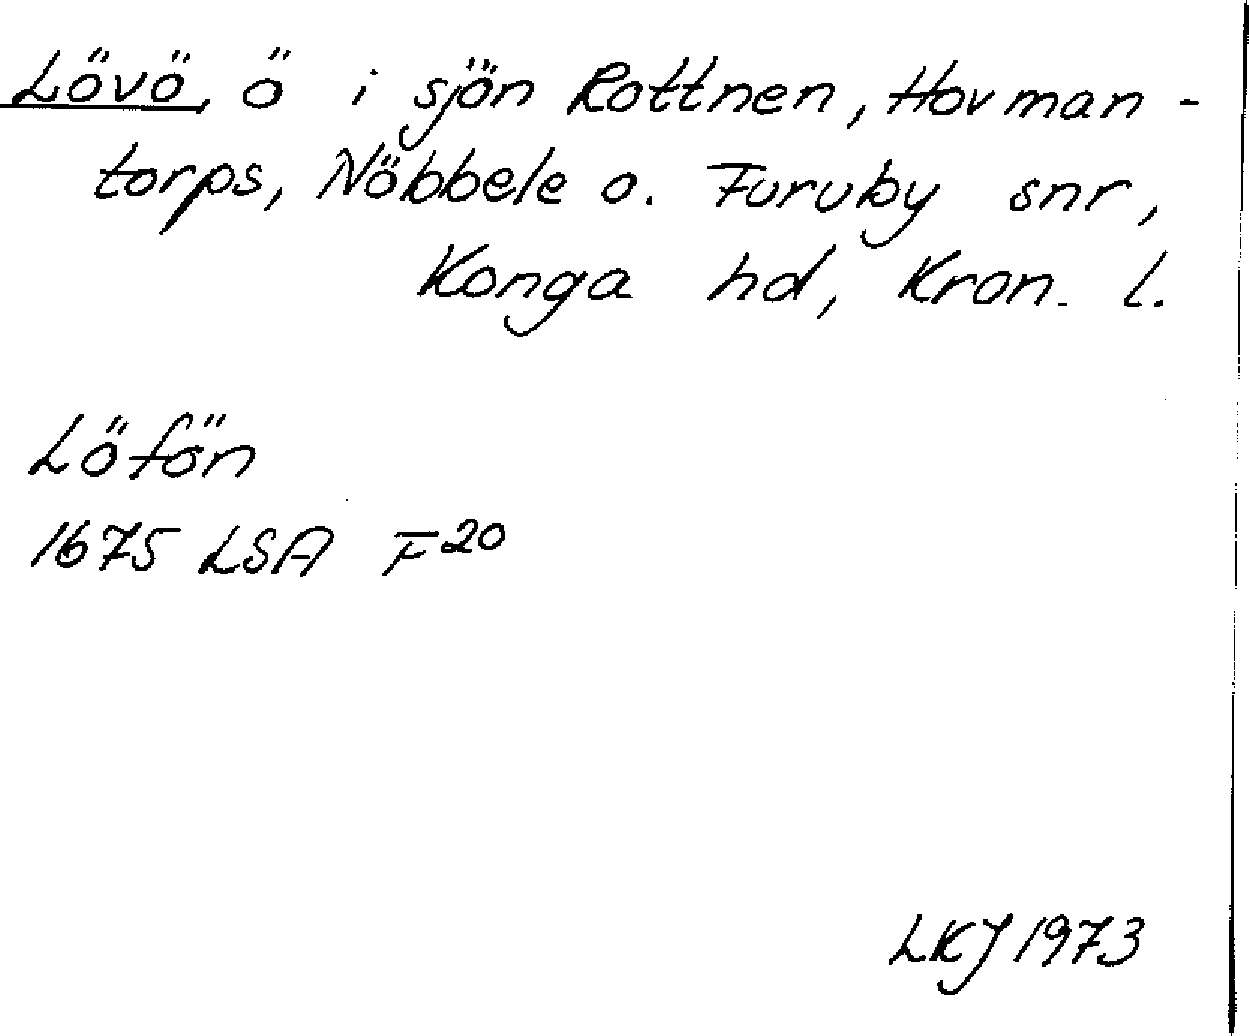 Lövö, ö i sjön Rottnen, Hovman-
torps, Nöbbele o. Furuby snr,
Konga hd, Kron. l.
Löfön
1675 LSA F20
LKJ 1973